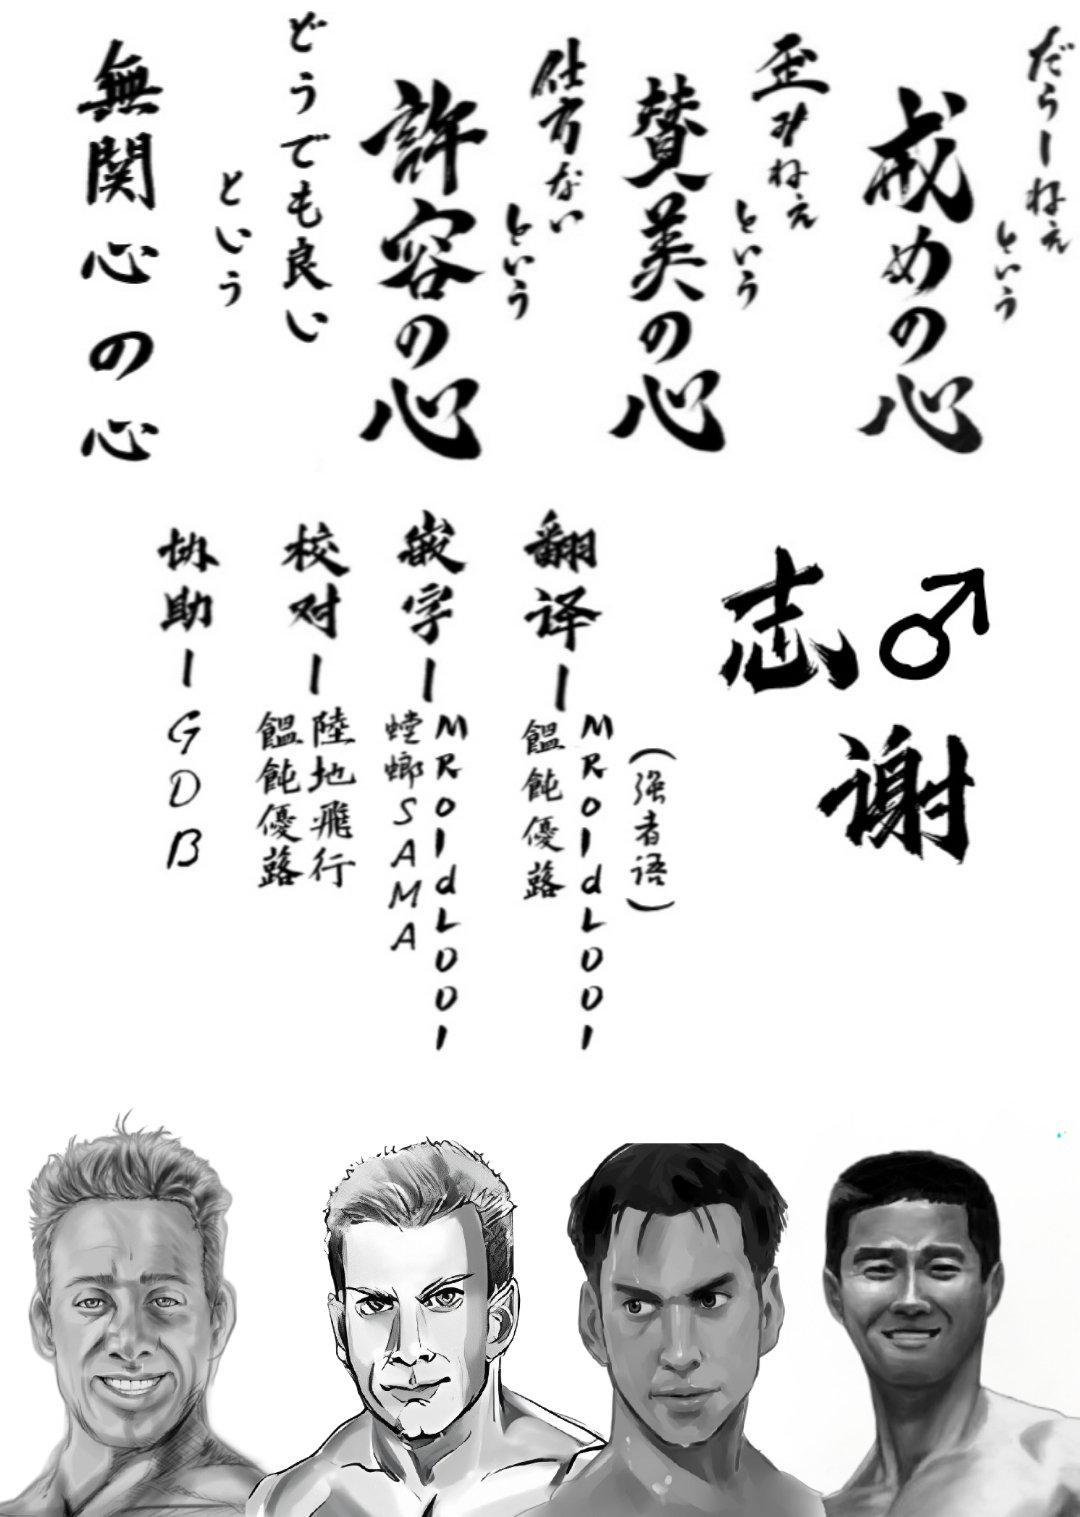 だらーねえ
という
戒めの心
歪みねえ
という
賛美の心
仕方ない
という
許容の心
どうでも良い
という
無関心の心
志♂
谢
(强者语)
翻译ー
MROIdLDDI
餛飩優蕗
嵌字ー
MROIdLDDI
螳螂SAMA
校对ー
陸地飛行
餛飩優蕗
协助ー
GDB